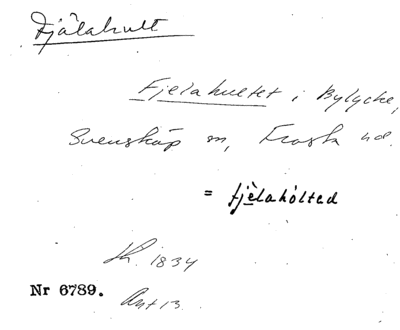 Fjälahult
Fjelahultet i Bylycke,
Svensköp sn, Frosta hd.
= fjèlahòlted
Sk. 1834
Nr 6789.
Ant 13.